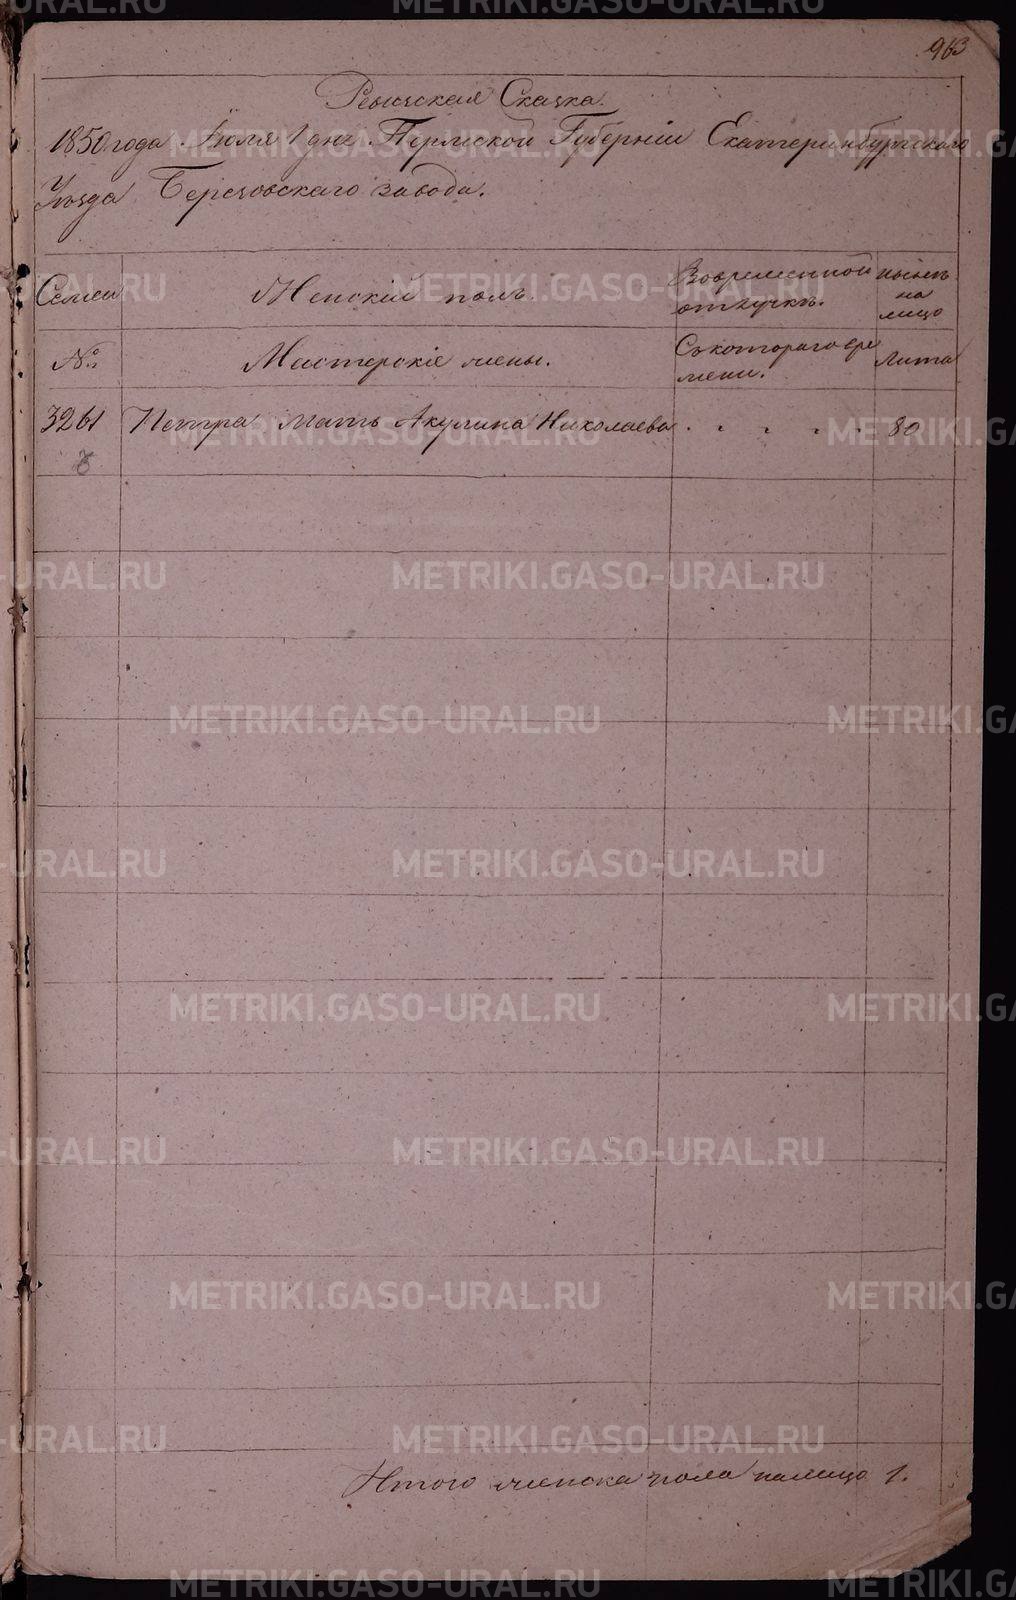 963
Ревизская Сказка.
1850 года Июля 1 дня Пермской Губерніи Екатеринбургского
Уезда Березовскаго завода.
Семьи
Женскій полъ.
Вовременной
отлучкѣ.
нынѣ
на
лицо
№
Мастерскіе жены.
Скотораго вре
мени.
Лита
3261
Петра мать Акулина Николаева
80
Итого женска пола налицо 1.
METRIKI.GASO-URAL.RU